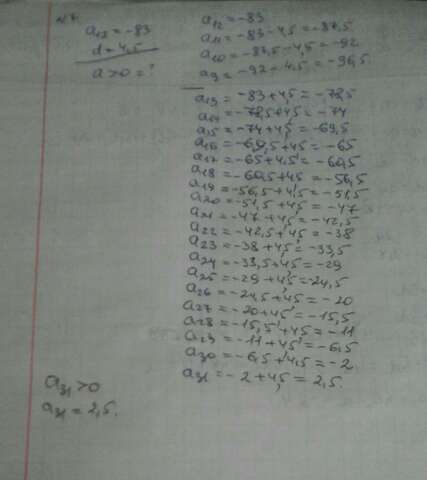 №7
a₁₂ = -83
d = 4,5
a>0 = ?
a₁₂ = -83
a₁₁ = -83 - 4,5 = -87,5
a₁₀ = -87,5 - 4,5 = -92
a₉ = -92 - 4,5 = -96,5
a₁₃ = -83 + 4,5 = -78,5
a₁₄ = -78,5 + 4,5 = -74
a₁₅ = -74 + 4,5 = -69,5
a₁₆ = -69,5 + 4,5 = -65
a₁₇ = -65 + 4,5 = -60,5
a₁₈ = -60,5 + 4,5 = -56,5
a₁₉ = -56,5 + 4,5 = -51,5
a₂₀ = -51,5 + 4,5 = -47
a₂₁ = -47 + 4,5 = -42,5
a₂₂ = -42,5 + 4,5 = -38
a₂₃ = -38 + 4,5 = -33,5
a₂₄ = -33,5 + 4,5 = -29
a₂₅ = -29 + 4,5 = -24,5
a₂₆ = -24,5 + 4,5 = -20
a₂₇ = -20 + 4,5 = -15,5
a₂₈ = -15,5 + 4,5 = -11
a₂₉ = -11 + 4,5 = -6,5
a₃₀ = -6,5 + 4,5 = -2
a₃₁ = -2 + 4,5 = 2,5.
a₃₁ > 0
a₃₁ = 2,5.